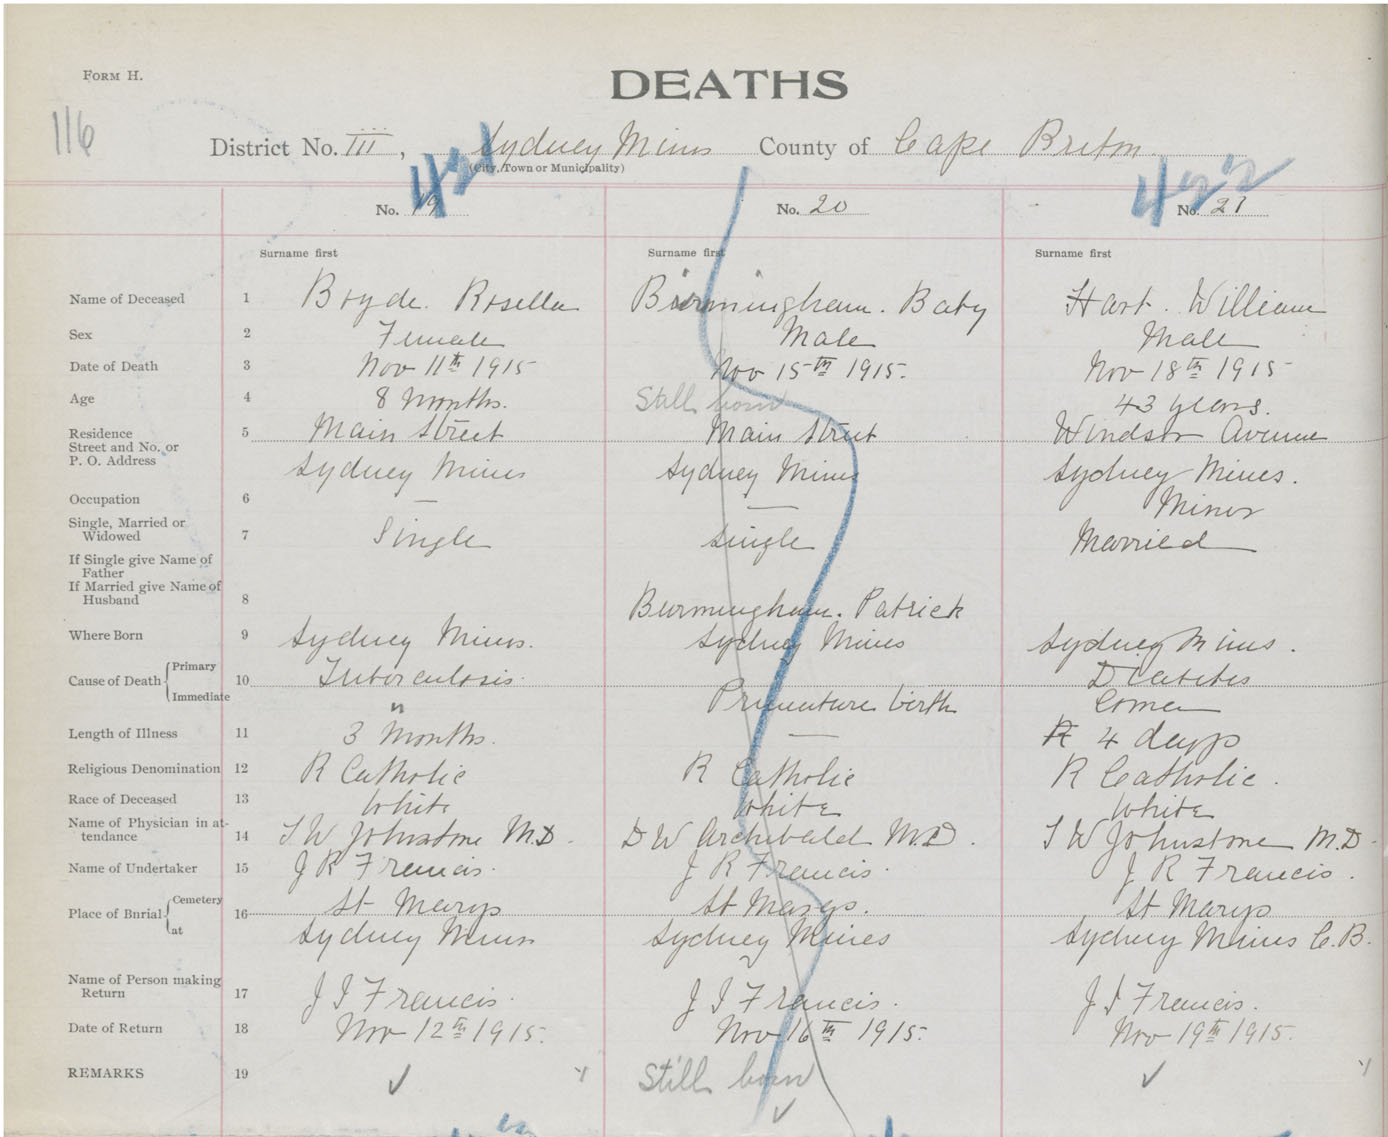 FORM H.
DEATHS
116
District No. III, Sydney Mines County of Cape Breton
(City, Town or Municipality)
No. 19 No. 20 No. 21
Surname first Surname first Surname first
Name of Deceased 1 Boyde. Rosella Burmingham. Baby Hart. William
Sex 2 Female Male Male
Date of Death 3 Nov 11th 1915 Nov 15th 1915. Nov 18th 1915
Age 4 8 Months. Still born 43 years.
Residence 5 Main Street Main Street Windsor Avenue
Street and No. or
P. O. Address Sydney Mines Sydney Mines Sydney Mines.
Occupation 6 — — Miner
Single, Married or
Widowed 7 Single Single Married
If Single give Name of
Father
If Married give Name of
Husband 8 Burmingham. Patrick
Where Born 9 Sydney Mines. Sydney Mines Sydney Mines.
Cause of Death Primary 10 Tuberculosis. Diabetes
Immediate " Premature birth Coma
Length of Illness 11 3 Months. — 4 days
Religious Denomination 12 R Catholic R Catholic R Catholic.
Race of Deceased 13 White White White
Name of Physician in at-
tendance 14 T W Johnstone M.D. D W Archibald M.D. T W Johnstone M.D.
Name of Undertaker 15 J R Francis. J R Francis. J R Francis.
Place of Burial Cemetery 16 St Marys St Marys. St Marys
at Sydney Mines Sydney Mines Sydney Mines C.B.
Name of Person making
Return 17 J J Francis. J J Francis. J J Francis.
Date of Return 18 Nov 12th 1915. Nov 16th 1915. Nov 19th 1915.
REMARKS 19 ✓ Still born ✓ ✓